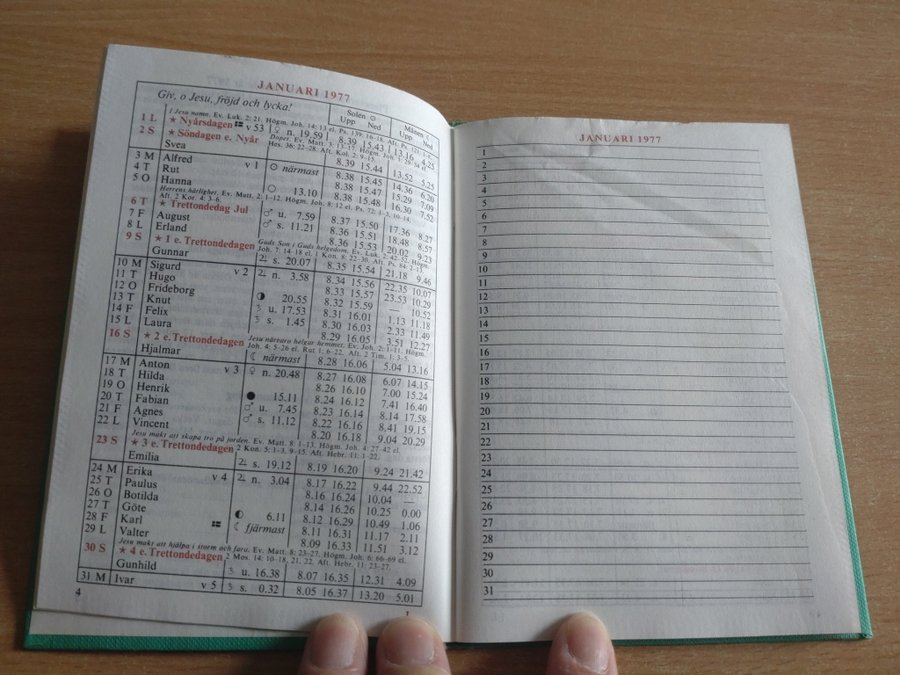 JANUARI 1977
Giv, o Jesu, fröjd och lycka!
Solen Månen
Upp Ned Upp Ned
1 L ★ Nyårsdagen v 53 ♀ n. 19.59 8.39 15.43 13.16 4.25
2 S ★ Söndagen e. Nyår
Svea 8.39 15.44 13.52 5.25
3 M Alfred v 1 närmast 8.38 15.45 14.36 6.20
4 T Rut 8.38 15.47 15.29 7.09
5 O Hanna 13.10 8.38 15.48 16.30 7.52
6 T ★ Trettondedag Jul ♂ u. 7.59 8.37 15.50 17.36 8.27
7 F August ♂ s. 11.21 8.36 15.51 18.48 8.57
8 L Erland 8.36 15.53 20.02 9.23
9 S ★ 1 e. Trettondedagen
Gunnar ♃ s. 20.07 8.35 15.54 21.18 9.46
10 M Sigurd v 2 ♃ n. 3.58 8.34 15.56 22.35 10.07
11 T Hugo 8.33 15.57 23.53 10.29
12 O Frideborg 20.55 8.32 15.59 — 10.52
13 T Knut ♄ u. 17.53 8.31 16.01 1.13 11.18
14 F Felix ♄ s. 1.45 8.30 16.03 2.33 11.49
15 L Laura 8.29 16.05 3.51 12.27
Jesu närvaro helgar hemmet. Ev. Joh. 2: 1–11. Högm.
16 S ★ 2 e. Trettondedagen Joh. 4: 5–26 el. Rut 1: 6–22. Aft. 2 Tim. 1: 3–5.
Hjalmar ☾ närmast 8.28 16.06 5.04 13.16
17 M Anton v 3 ♀ n. 20.48 8.27 16.08 6.07 14.15
18 T Hilda 8.26 16.10 7.00 15.24
19 O Henrik 15.11 8.24 16.12 7.41 16.40
20 T Fabian ♂ u. 7.45 8.23 16.14 8.14 17.58
21 F Agnes ♂ s. 11.12 8.22 16.16 8.41 19.15
22 L Vincent 8.20 16.18 9.04 20.29
Jesu makt att skapa tro på jorden. Ev. Matt. 8: 1–13. Högm. Joh. 4: 27–42 el.
23 S ★ 3 e. Trettondedagen 2 Kon. 5: 1–3, 9–15. Aft. Hebr. 11: 1–22.
Emilia ♃ s. 19.12 8.19 16.20 9.24 21.42
24 M Erika v 4 ♃ n. 3.04 8.17 16.22 9.44 22.52
25 T Paulus 8.16 16.24 10.04 —
26 O Botilda 8.14 16.26 10.25 0.00
27 T Göte 6.11 8.12 16.29 10.49 1.06
28 F Karl ☾ fjärmast 8.11 16.31 11.17 2.11
29 L Valter 8.09 16.33 11.51 3.12
Jesu makt att hjälpa i storm och fara. Ev. Matt. 8: 23–27. Högm. Joh. 6: 66–69 el.
30 S ★ 4 e. Trettondedagen 2 Mos. 14: 10–18, 21, 22. Aft. Hebr. 11: 23–27.
Gunhild ♄ u. 16.38 8.07 16.35 12.31 4.09
31 M Ivar v 5 ♄ s. 0.32 8.05 16.37 13.20 5.01
4
1
JANUARI 1977
1
2
3
4
5
6
7
8
9
10
11
12
13
14
15
16
17
18
19
20
21
22
23
24
25
26
27
28
29
30
31